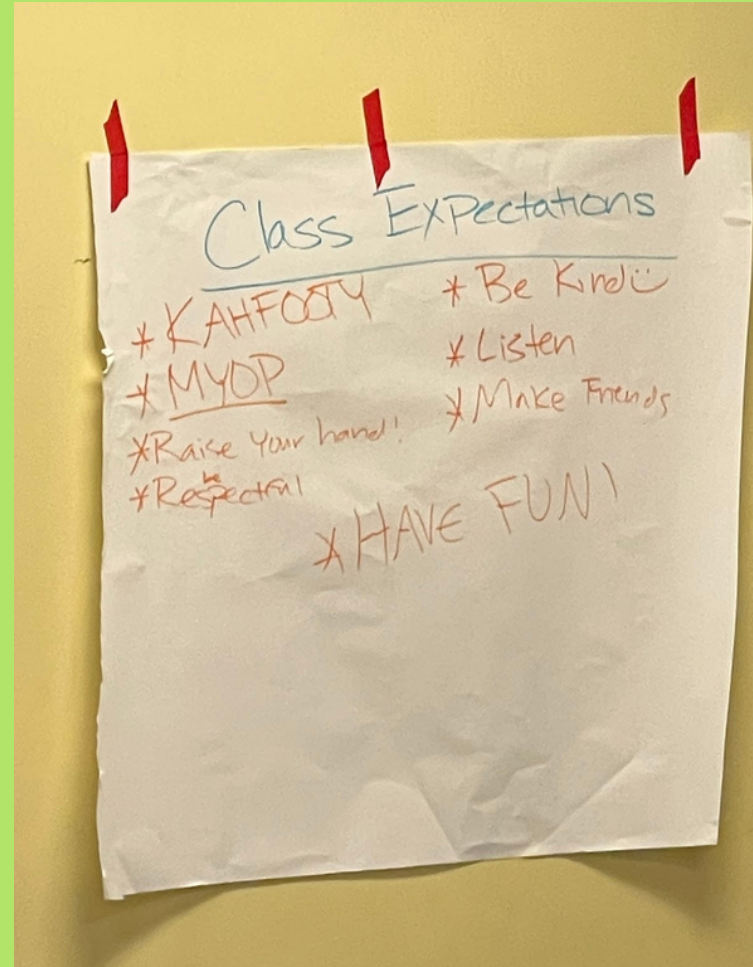 Class Expectations
* KAHFOOTY
* MYOP
* Raise Your hand!
* be Respectful
* Be Kind ü
* Listen
* Make Friends
* HAVE FUN!